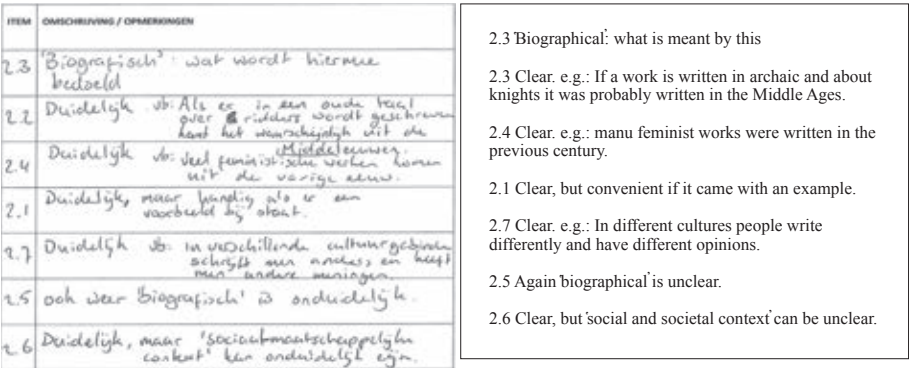 ITEM OMSCHRIJVING / OPMERKINGEN
2.3 'Biografisch': wat wordt hiermee
bedoeld
2.2 Duidelijk vb: Als er in een oude taal
over ridders wordt geschreven
komt het waarschijnlijk uit de
Middeleeuwen.
2.4 Duidelijk vb: veel feministische werken komen
uit de vorige eeuw.
2.1 Duidelijk, maar handig als er een
voorbeeld bij staat.
2.7 Duidelijk vb: in verschillende cultuurgebieden
schrijft men anders, en heeft
men andere meningen.
2.5 ook weer 'biografisch' is onduidelijk.
2.6 Duidelijk, maar 'sociaalmaatschappelijke
context' kan onduidelijk zijn.
2.3 'Biographical': what is meant by this
2.3 Clear. e.g.: If a work is written in archaic and about
knights it was probably written in the Middle Ages.
2.4 Clear. e.g.: manu feminist works were written in the
previous century.
2.1 Clear, but convenient if it came with an example.
2.7 Clear. e.g.: In different cultures people write
differently and have different opinions.
2.5 Again 'biographical' is unclear.
2.6 Clear, but 'social and societal context' can be unclear.